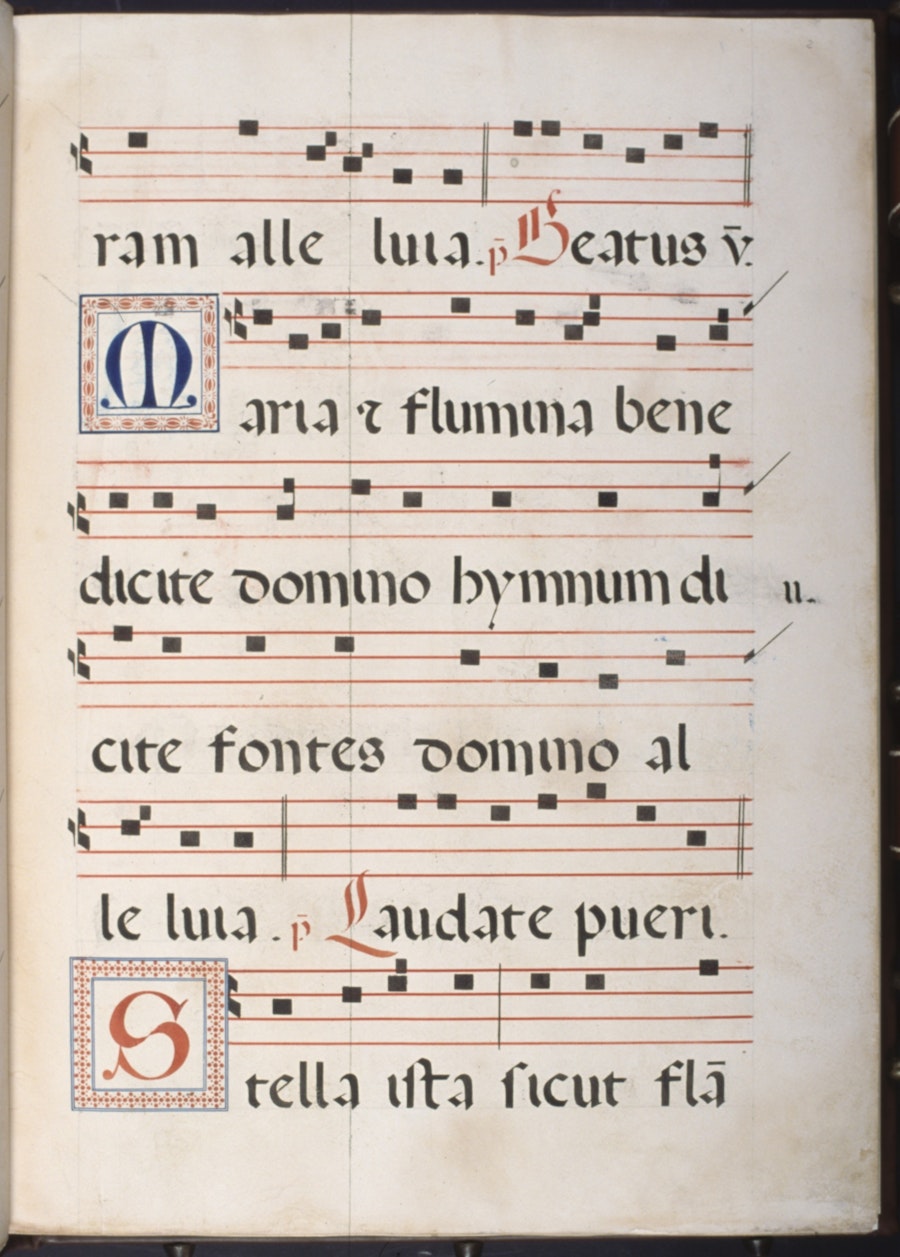 ram alle luia. p̄ Beatus v̄.
Maria ⁊ flumina bene
dicite domino hymnum di
II.
cite fontes domino al
le luia. p̄ Laudate pueri.
Stella ista sicut flā